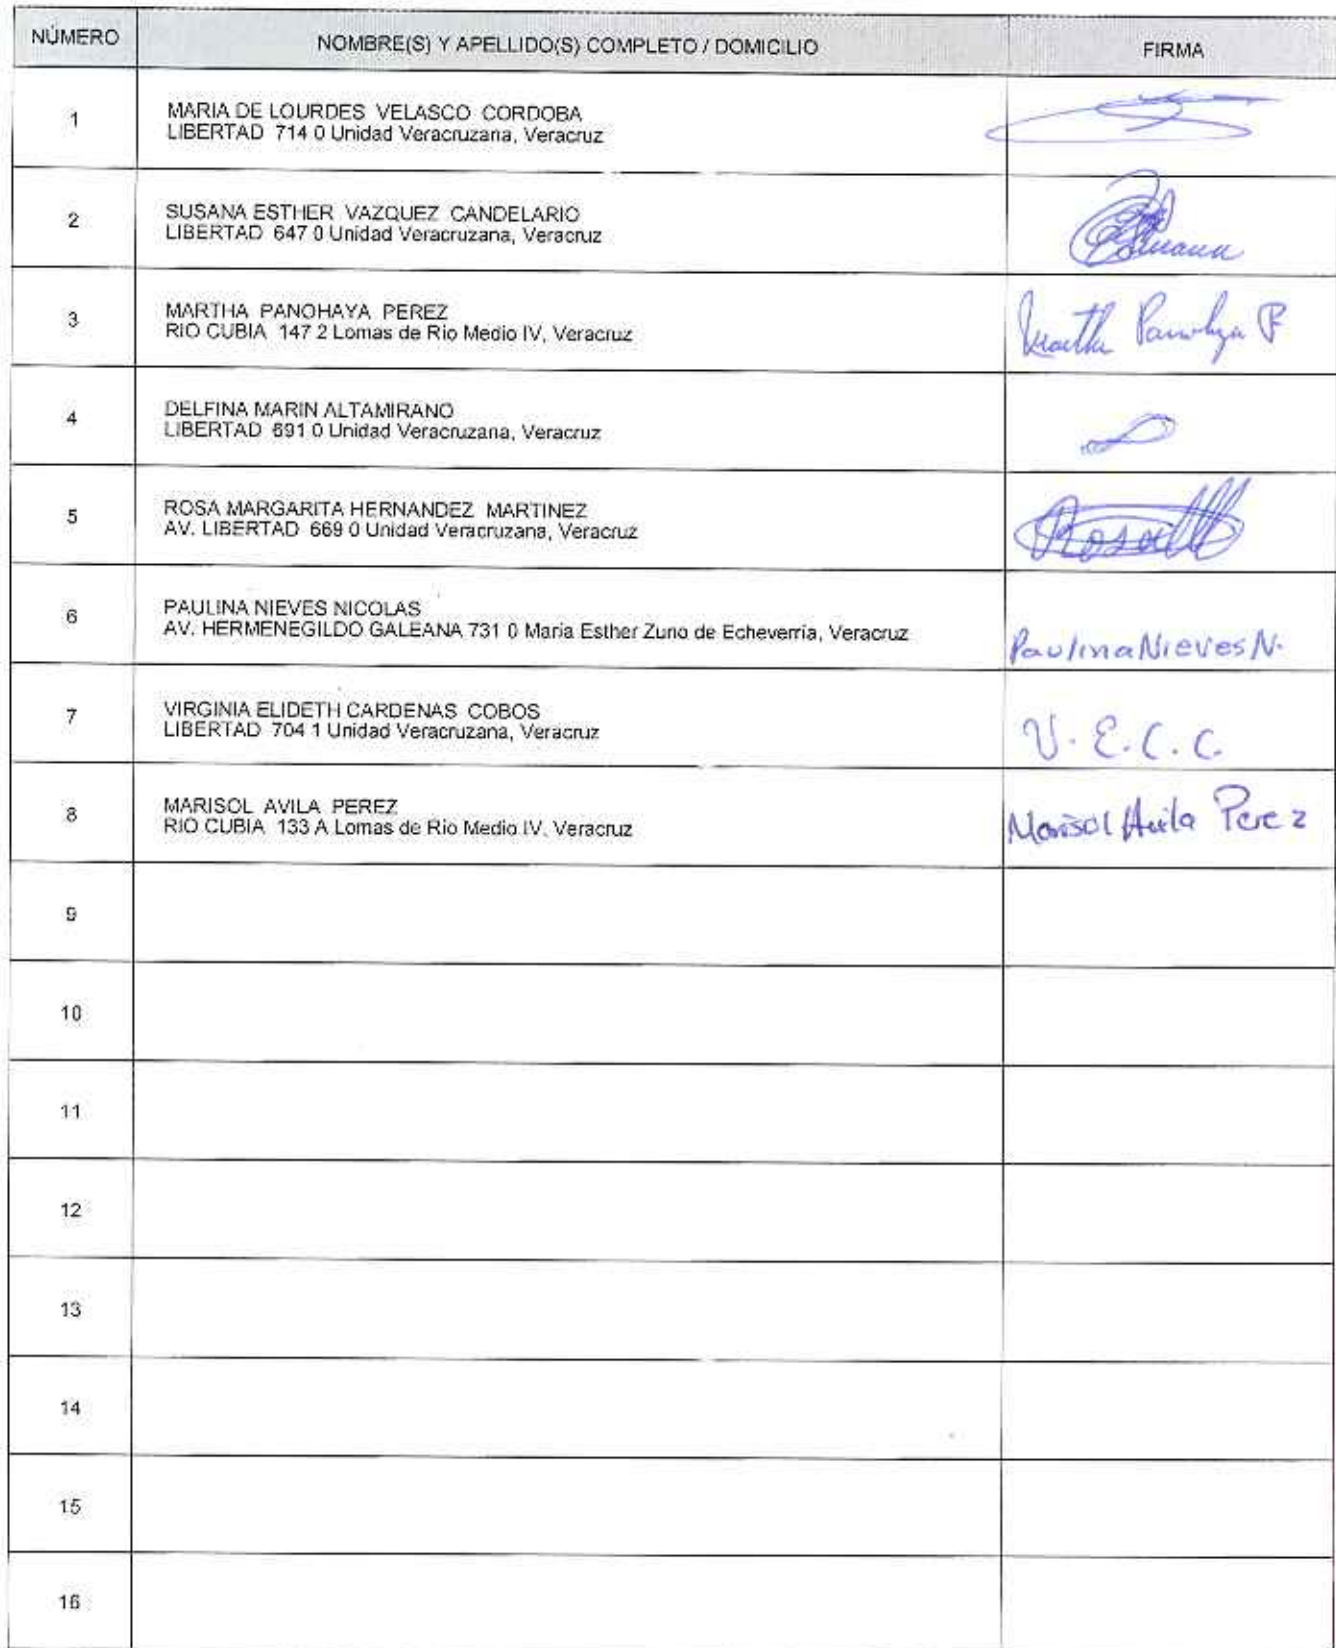 NÚMERO NOMBRE(S) Y APELLIDO(S) COMPLETO / DOMICILIO FIRMA
1 MARIA DE LOURDES VELASCO CORDOBA
LIBERTAD 714 0 Unidad Veracruzana, Veracruz
2 SUSANA ESTHER VAZQUEZ CANDELARIO
LIBERTAD 647 0 Unidad Veracruzana, Veracruz
3 MARTHA PANOHAYA PEREZ
RIO CUBIA 147 2 Lomas de Rio Medio IV, Veracruz
4 DELFINA MARIN ALTAMIRANO
LIBERTAD 691 0 Unidad Veracruzana, Veracruz
5 ROSA MARGARITA HERNANDEZ MARTINEZ
AV. LIBERTAD 669 0 Unidad Veracruzana, Veracruz
Rosa
6 PAULINA NIEVES NICOLAS
AV. HERMENEGILDO GALEANA 731 0 María Esther Zuno de Echeverría, Veracruz
Paulina Nieves N.
7 VIRGINIA ELIDETH CARDENAS COBOS
LIBERTAD 704 1 Unidad Veracruzana, Veracruz
V. E. C. C.
8 MARISOL AVILA PEREZ
RIO CUBIA 133 A Lomas de Rio Medio IV, Veracruz
Marisol Avila Perez
9
10
11
12
13
14
15
16